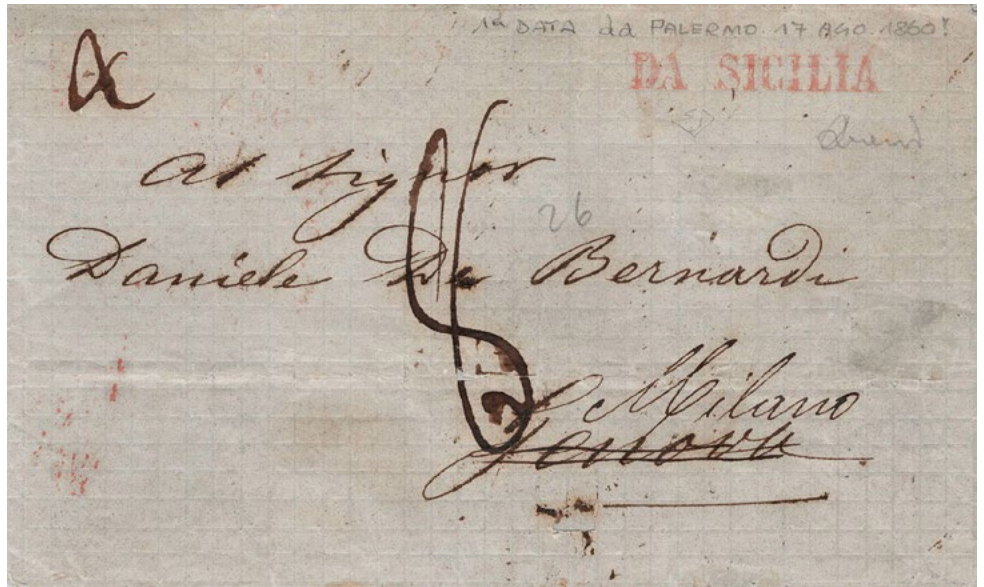 1a DATA da PALERMO 17 AGO. 1860!
DA SICILIA
Al Signor
26
Daniele De Bernardi
Milano
Genova